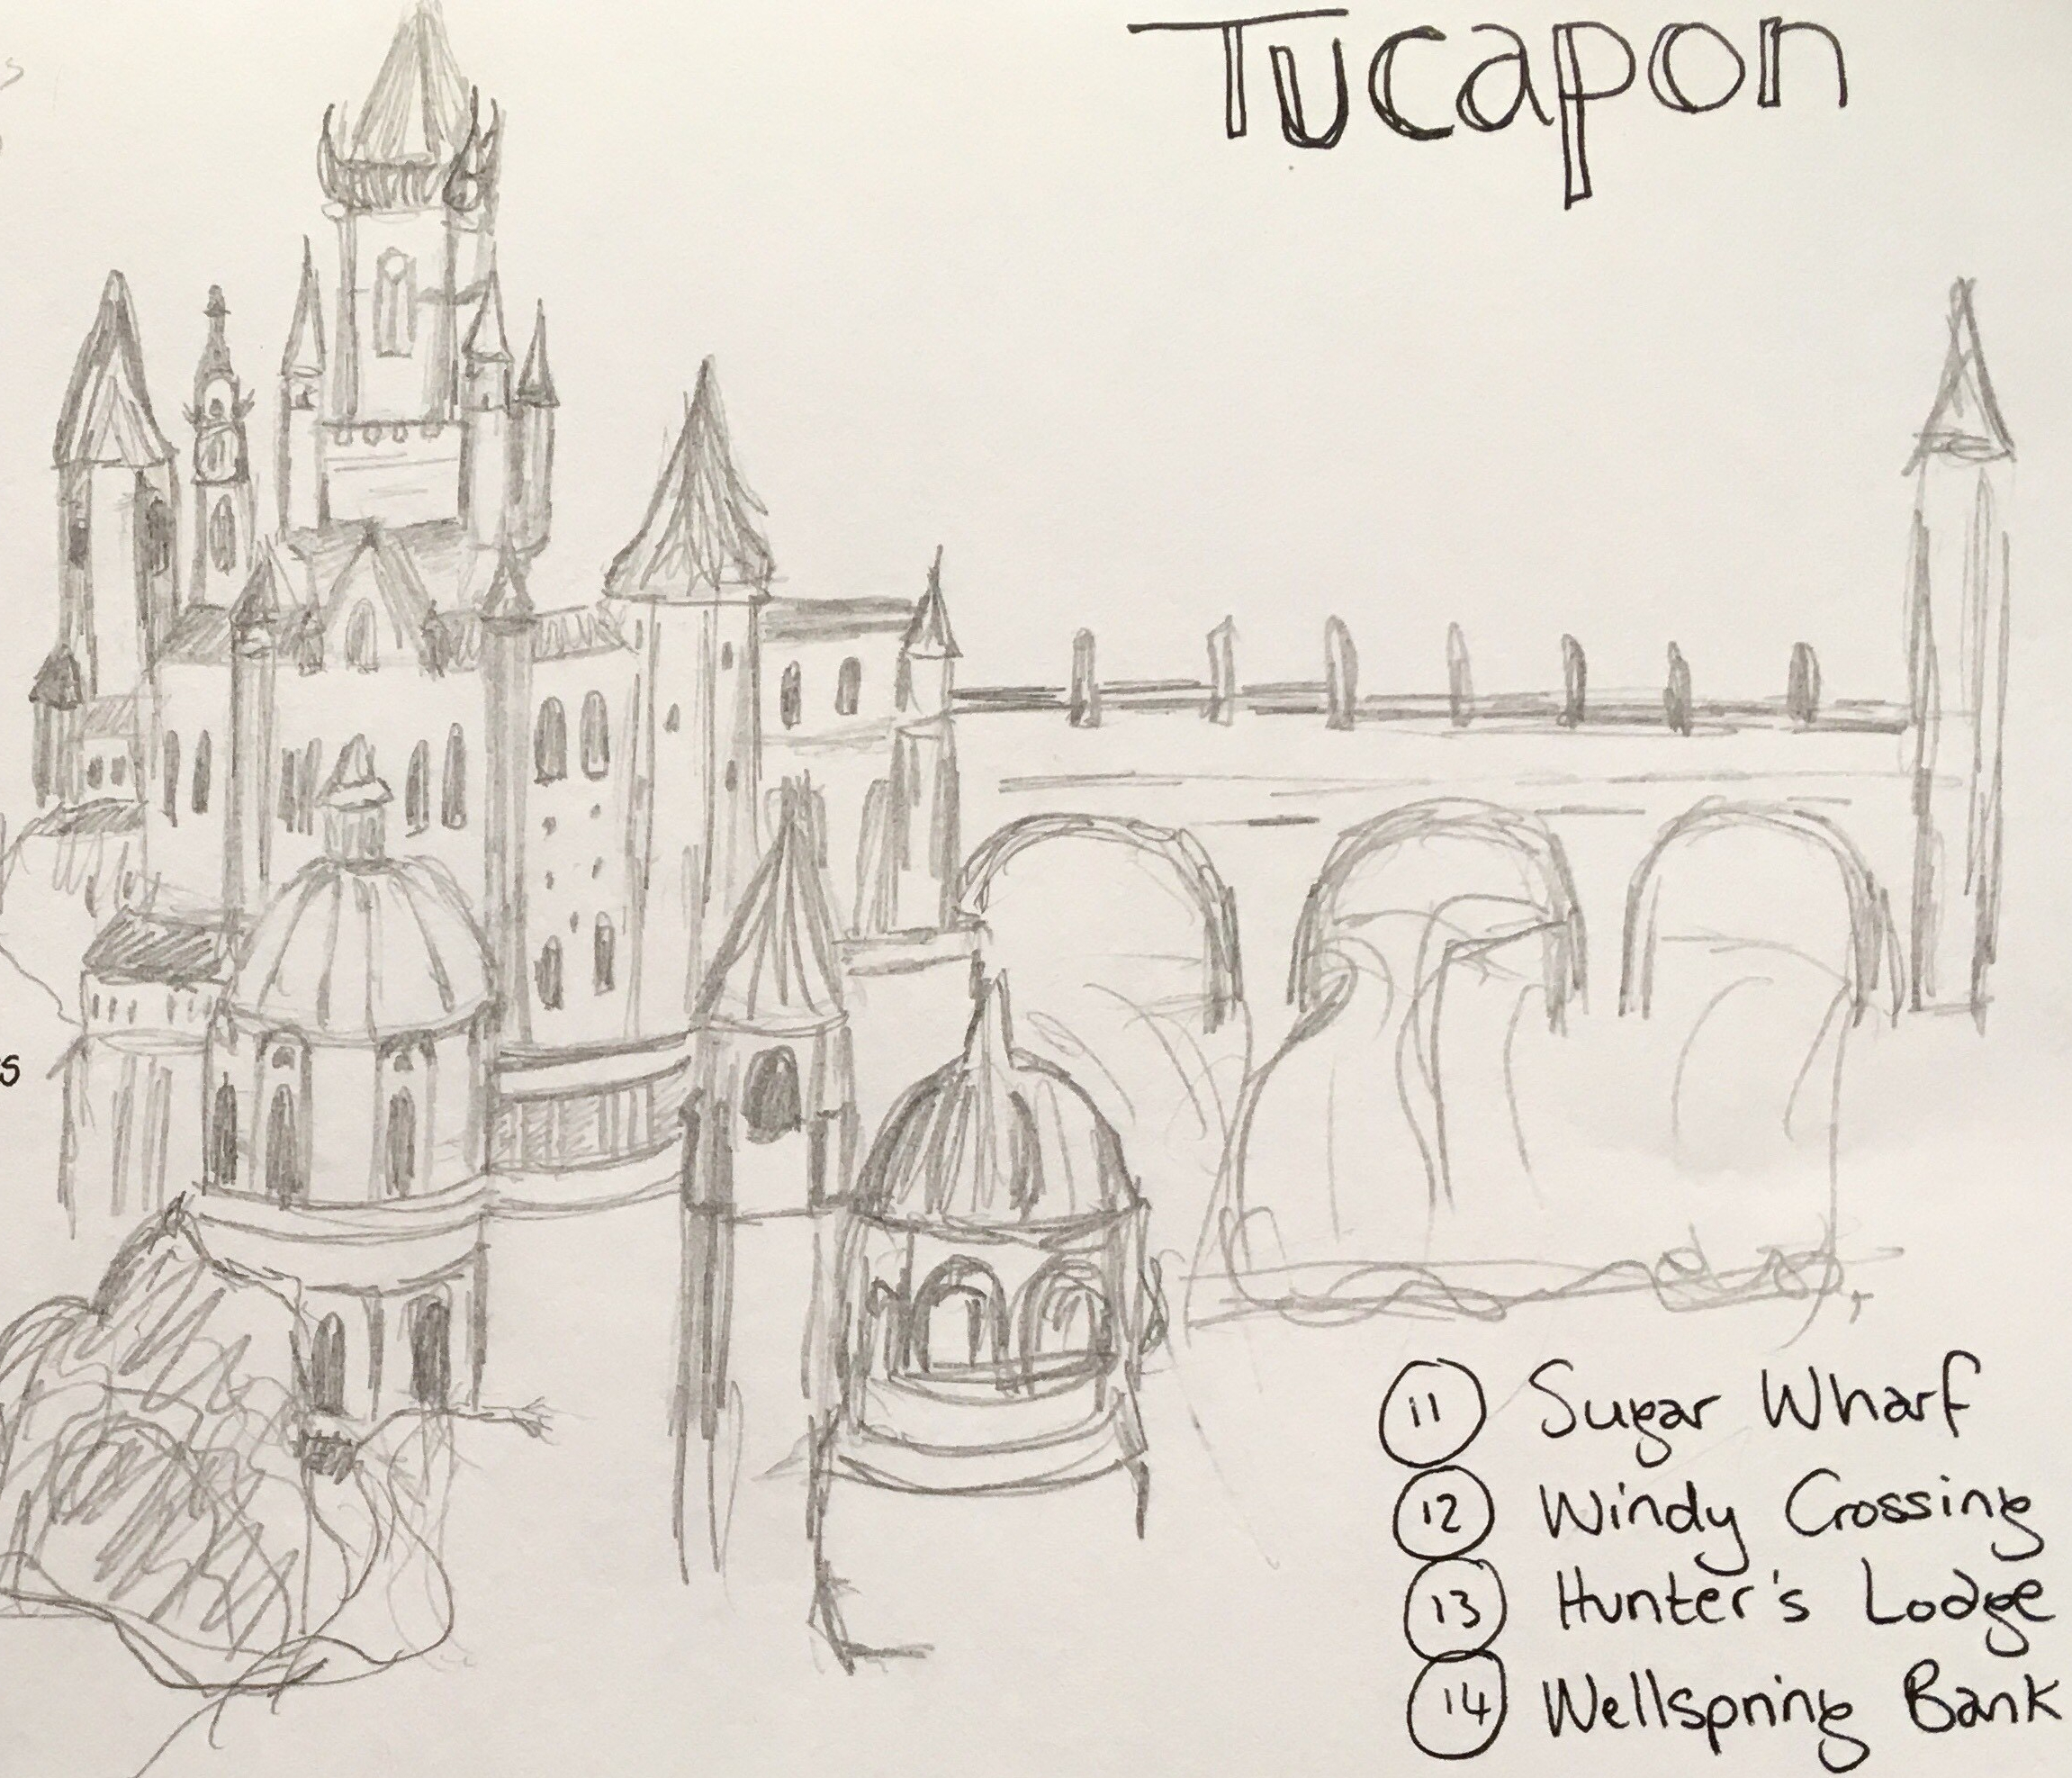 Tucapon
11 Sugar Wharf
12 Windy Crossing
13 Hunter's Lodge
14 Wellspring Bank